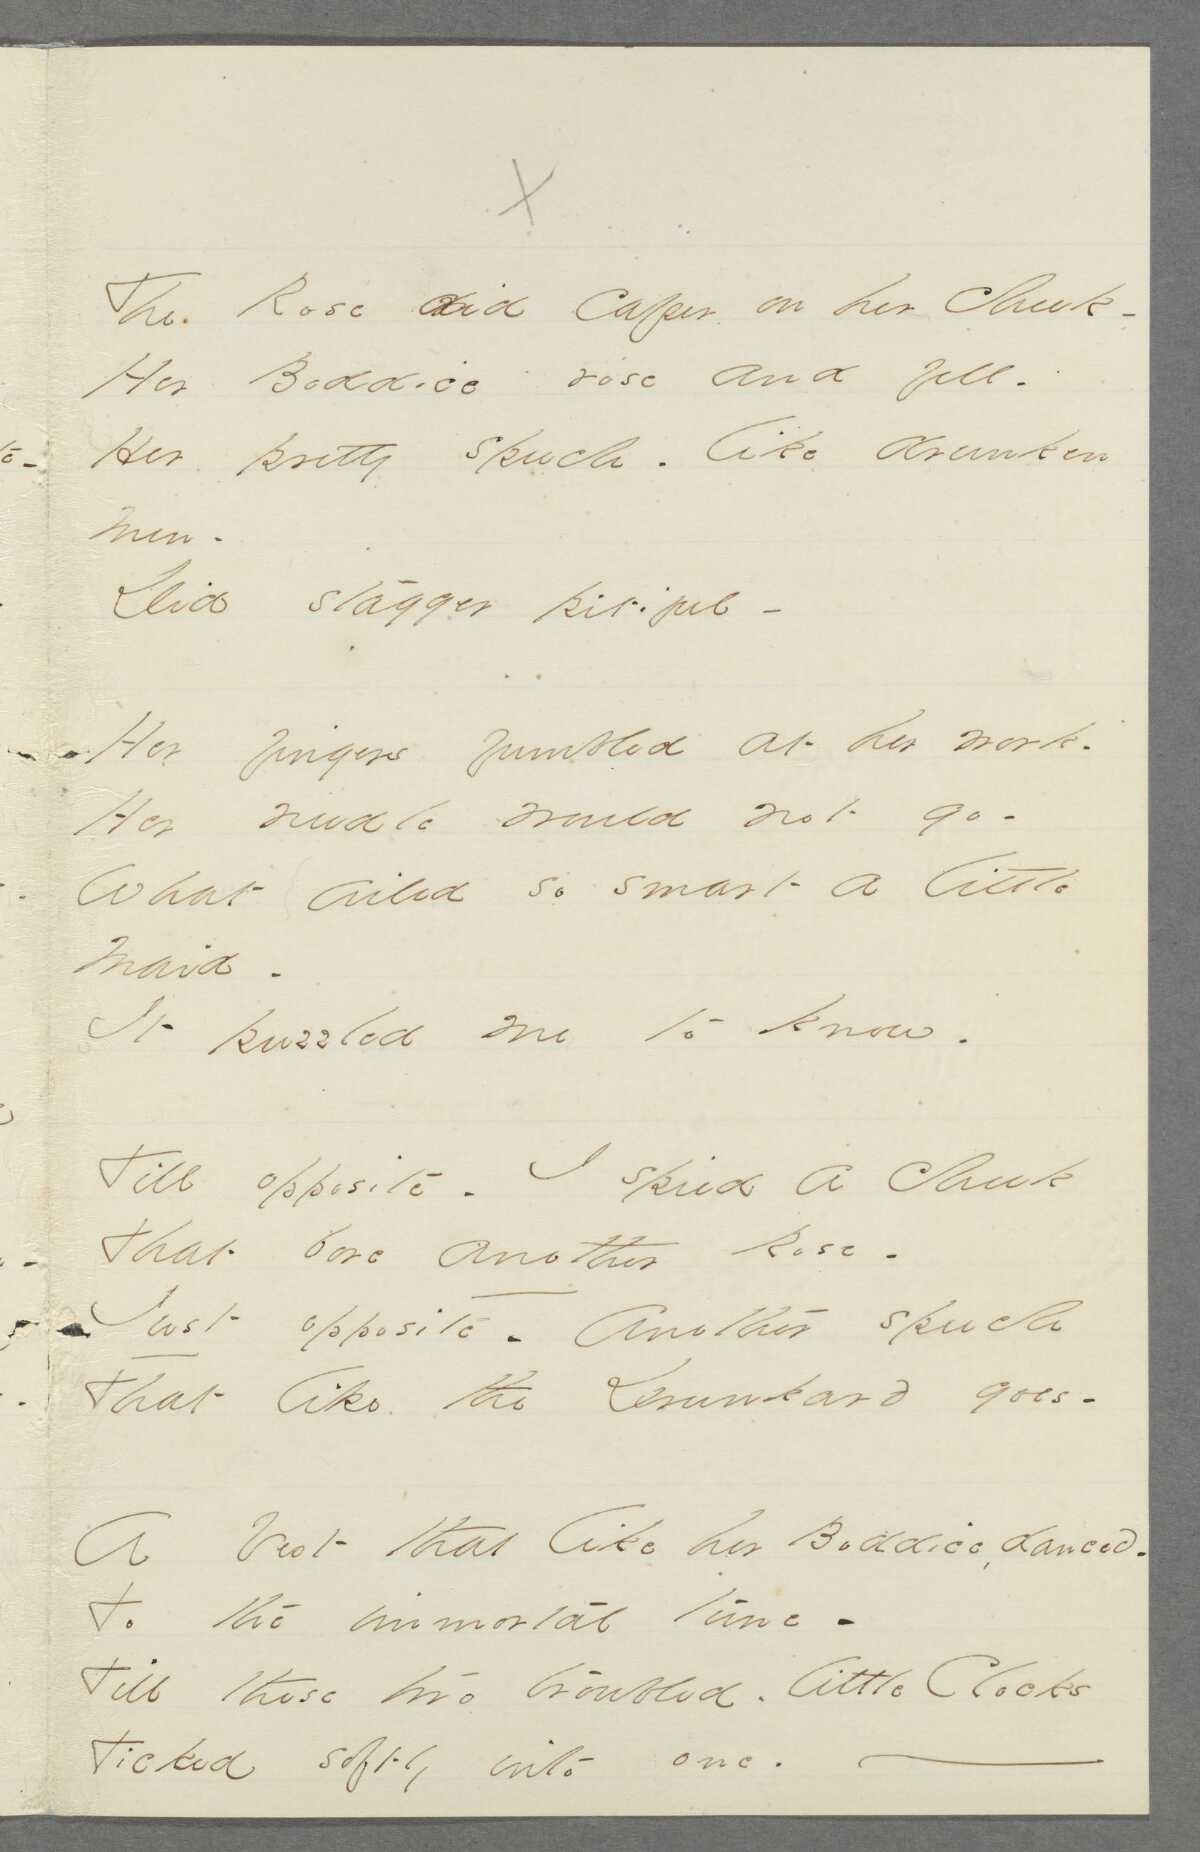 X
The Rose did caper on her Cheek -
Her Boddice rose and fell -
Her pretty speech - like drunken
men -
Did stagger pitiful -
Her fingers fumbled at her work -
Her needle would not go -
What ailed so smart a little
Maid -
It puzzled me to know -
Till opposite - I spied a Cheek
That bore another Rose -
Just opposite - Another speech
That like the Drunkard goes -
A Vest that like her Boddice, danced -
To the immortal tune -
Till those two troubled - little Clocks
Ticked softly into one -